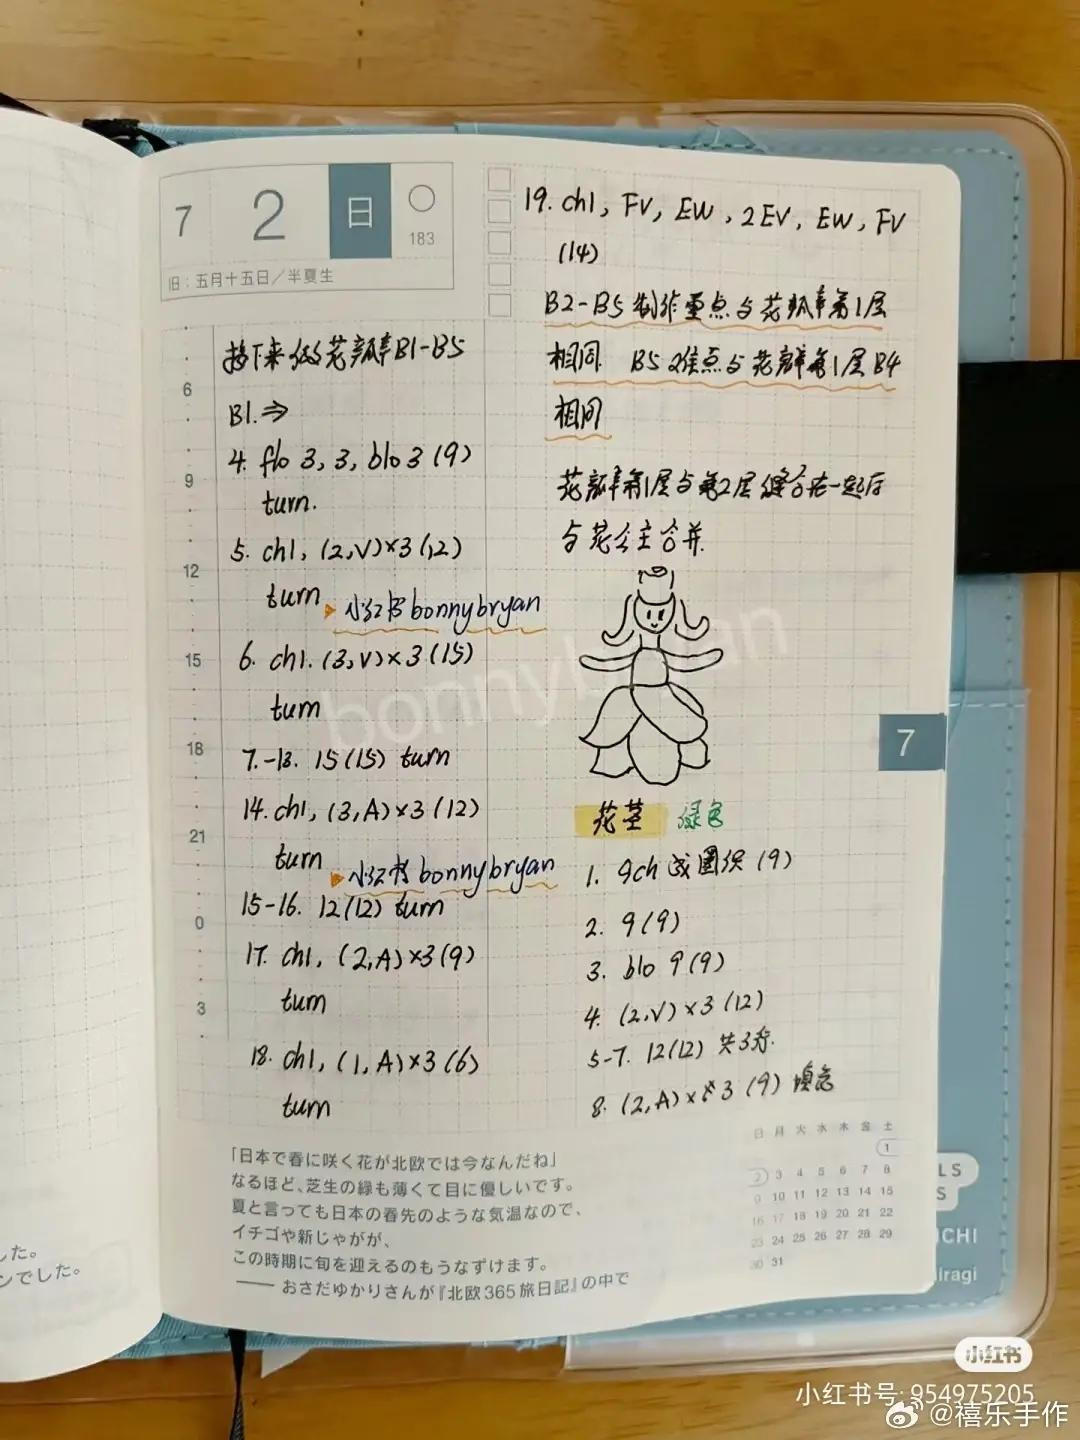 7 2 日
183
旧：五月十五日／半夏生
接下来做花瓣B1-B5
B1.⇒
4. flo 3, 3, blo 3 (9)
turn.
5. ch1, (2,V)×3 (12)
turn
小红书 bonnybryan
6. ch1. (3,V)×3 (15)
turn
7.-13. 15(15) turn
14. ch1, (3,A)×3 (12)
turn
小红书 bonnybryan
15-16. 12(12) turn
17. ch1, (2,A)×3 (9)
turn
18. ch1, (1,A)×3 (6)
turn
6
9
12
15
18
21
0
3
19. ch1, FV, EW, 2EV, EW, FV
(14)
B2-B5 制作重点与花瓣第1层
相同. B5难点与花瓣第1层B4
相同
花瓣第1层与第2层缝合在一起后
与花公主合并.
bonnybryan
花茎 绿色
1. 9ch 成圈织 (9)
2. 9(9)
3. blo 9(9)
4. (2,V)×3 (12)
5-7. 12(12) 共3行.
8. (2,A)×3 (9)
7
「日本で春に咲く花が北欧では今なんだね」
なるほど、芝生の緑も薄くて目に優しいです。
夏と言っても日本の春先のような気温なので、
イチゴや新じゃがが、
この時期に旬を迎えるのもうなずけます。
—— おさだゆかりさんが『北欧365旅日記』の中で
日 月 火 水 木 金 土
1
2 3 4 5 6 7 8
9 10 11 12 13 14 15
16 17 18 19 20 21 22
23 24 25 26 27 28 29
30 31
した。
ンでした。
LS
S
ICHI
iragi
小红书
小红书号: 954975205
@禧乐手作